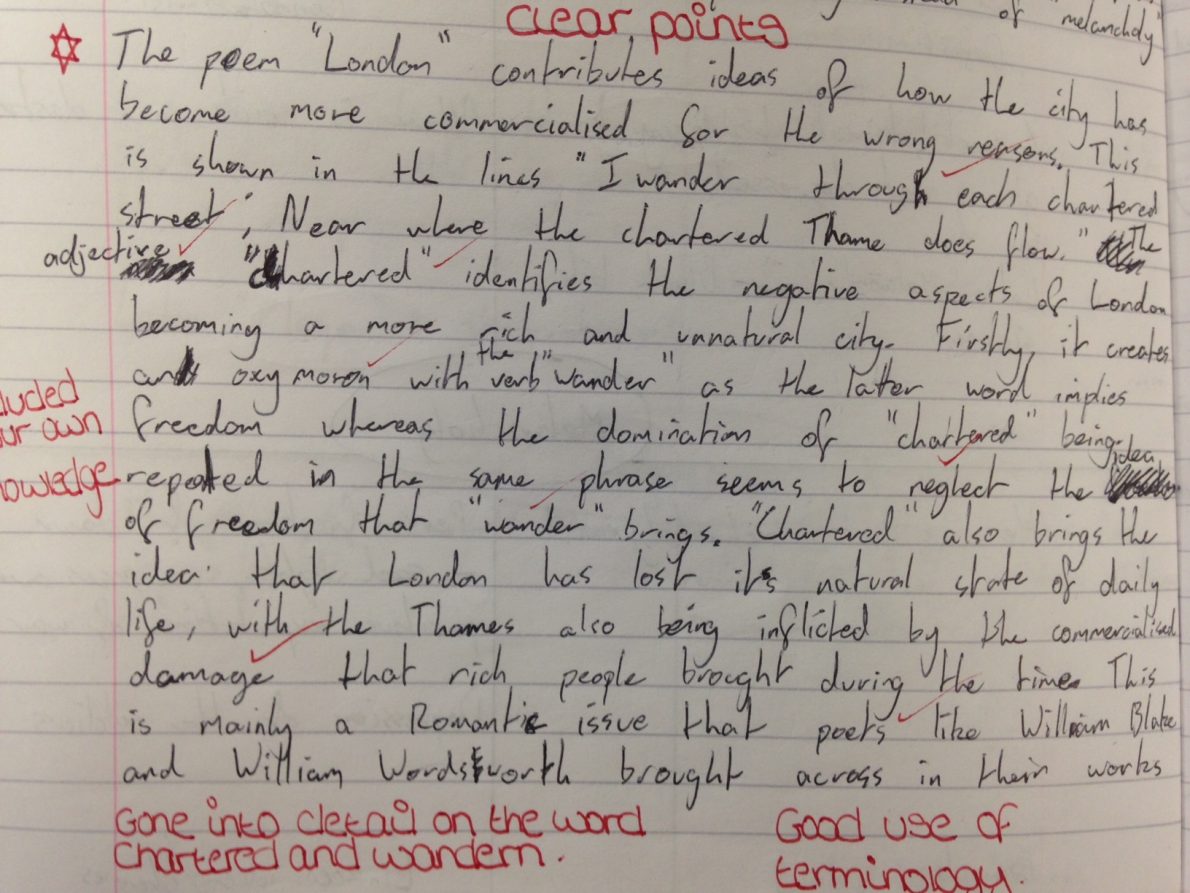 of melancholy"
clear points
The poem "London" contributes ideas of how the city has
become more commercialised for the wrong reasons. This
is shown in the lines "I wander through each chartered
street, Near where the chartered Thame does flow." The
adjective "Chartered" identifies the negative aspects of London
becoming a more rich and unnatural city. Firstly, it creates
an oxymoron with the verb "wander" as the latter word implies
freedom whereas the domination of "chartered" being
repeated in the same phrase seems to neglect the idea
of freedom that "wander" brings. "Chartered" also brings the
idea that London has lost its natural state of daily
life, with the Thames also being inflicted by the commercialised
damage that rich people brought during the time. This
is mainly a Romantic issue that poets like William Blake
and William Wordsworth brought across in their works
own
Gone into detail on the word
chartered and wandern.
Good use of
terminology.